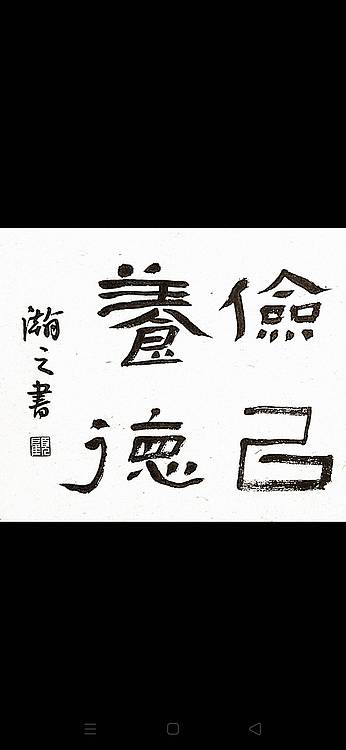 儉己
養德
瀚之書